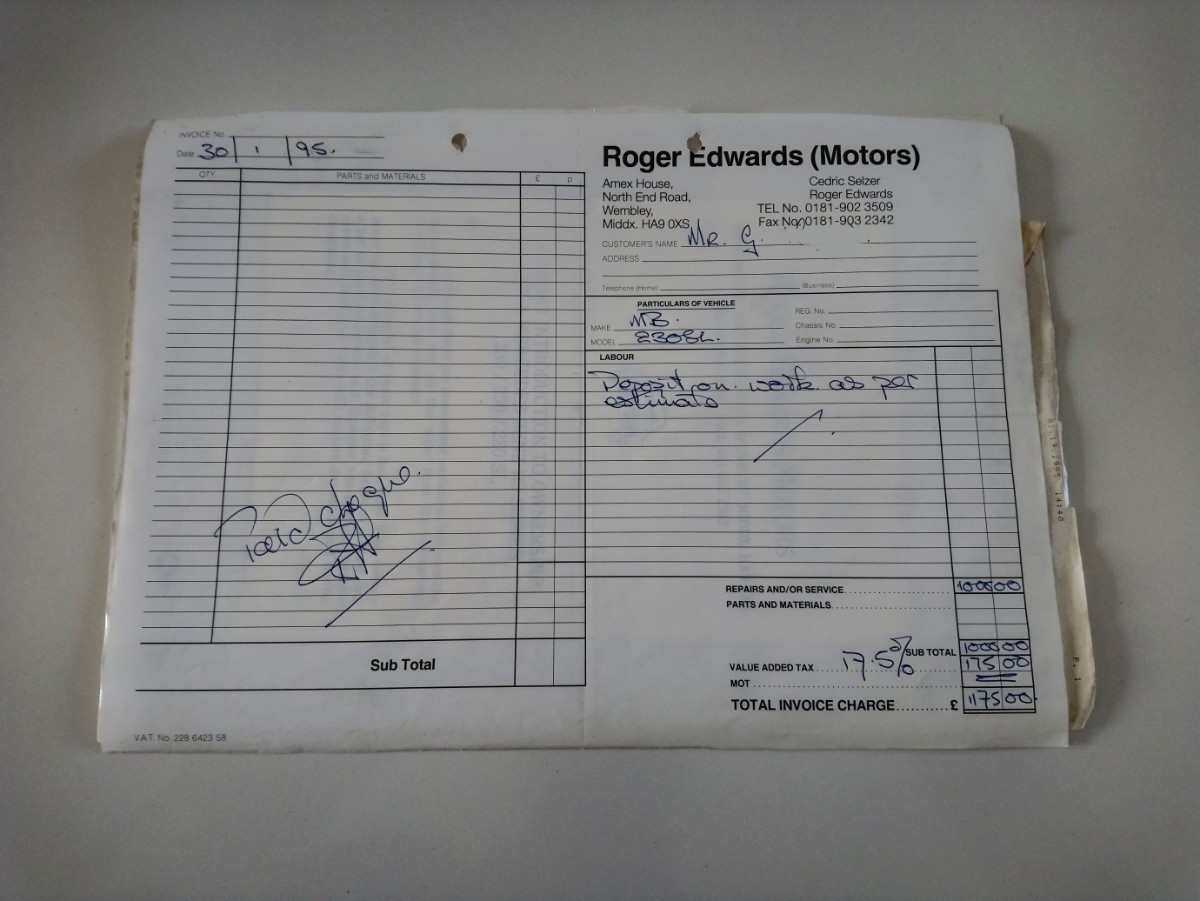 INVOICE No.
Date 30/1/95.
QTY. PARTS and MATERIALS £ p
Paid cheque.
Sub Total
V.A.T. No. 228 6423 58
Roger Edwards (Motors)
Amex House,
North End Road,
Wembley,
Middx. HA9 0XS
Cedric Selzer
Roger Edwards
TEL No. 0181-902 3509
Fax No. 0181-903 2342
CUSTOMER'S NAME MR. G.
ADDRESS
Telephone (Home) (Business)
PARTICULARS OF VEHICLE
MAKE MB.
MODEL 230SL.
REG. No.
Chassis No.
Engine No.
LABOUR
Deposit on work as per
estimate
REPAIRS AND/OR SERVICE 1000 00
PARTS AND MATERIALS
SUB TOTAL 1000 00
VALUE ADDED TAX 17.5% 175 00
MOT
TOTAL INVOICE CHARGE £ 1175 00